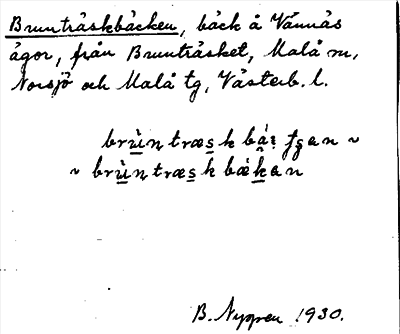 Brunträskbäcken, bäck å Vännäs
ägor, från Brunträsket, Malå sn,
Norsjö och Malå tg, Västerb. l.
~ brùn træsk bǽkan
B. Nygren 1930.